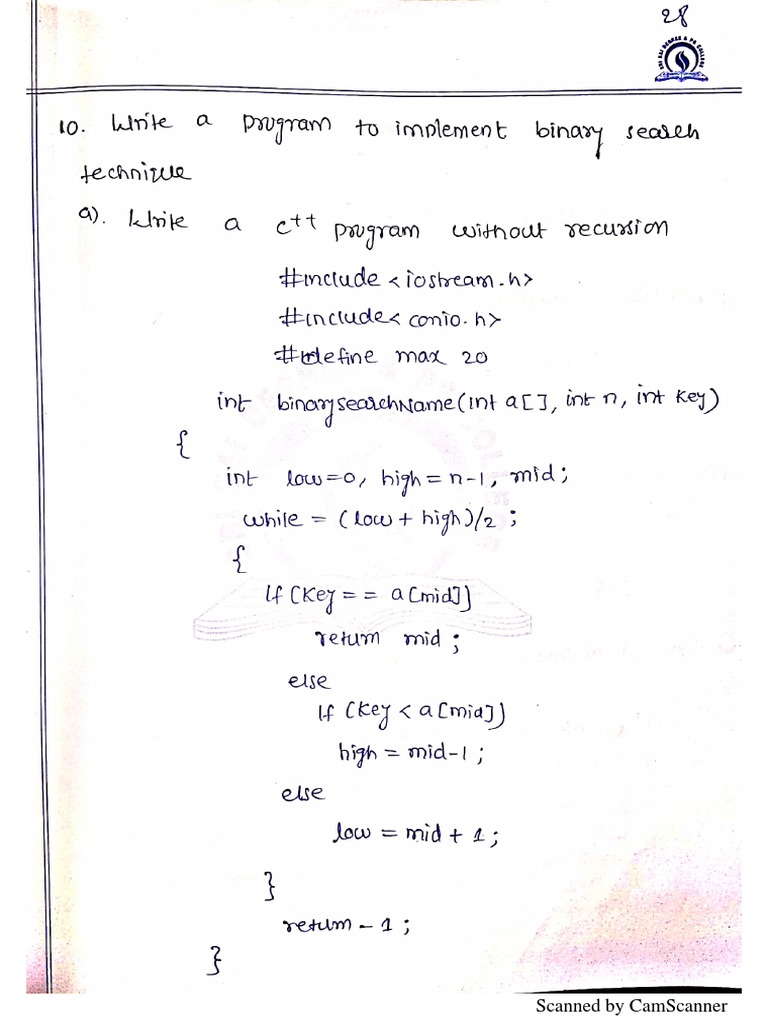 28
SRI SAI DEGREE & PG COLLEGE
10. Write a program to implement binary search
technique
a). Write a c++ program without recursion
#include <iostream.h>
#include< conio.h>
#define max 20
int binarysearchName(int a[], int n, int key)
{
int low=0, high = n-1, mid;
while = (low + high)/2 ;
{
If (key = = a[mid])
return mid ;
else
If (key < a[mid])
high = mid-1 ;
else
low = mid + 1;
}
return - 1 ;
}
Scanned by CamScanner